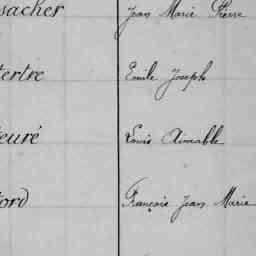 sacher Jean Marie Pierre
tertre Emile Joseph
euré Louis Aimable
ord François Jean Marie